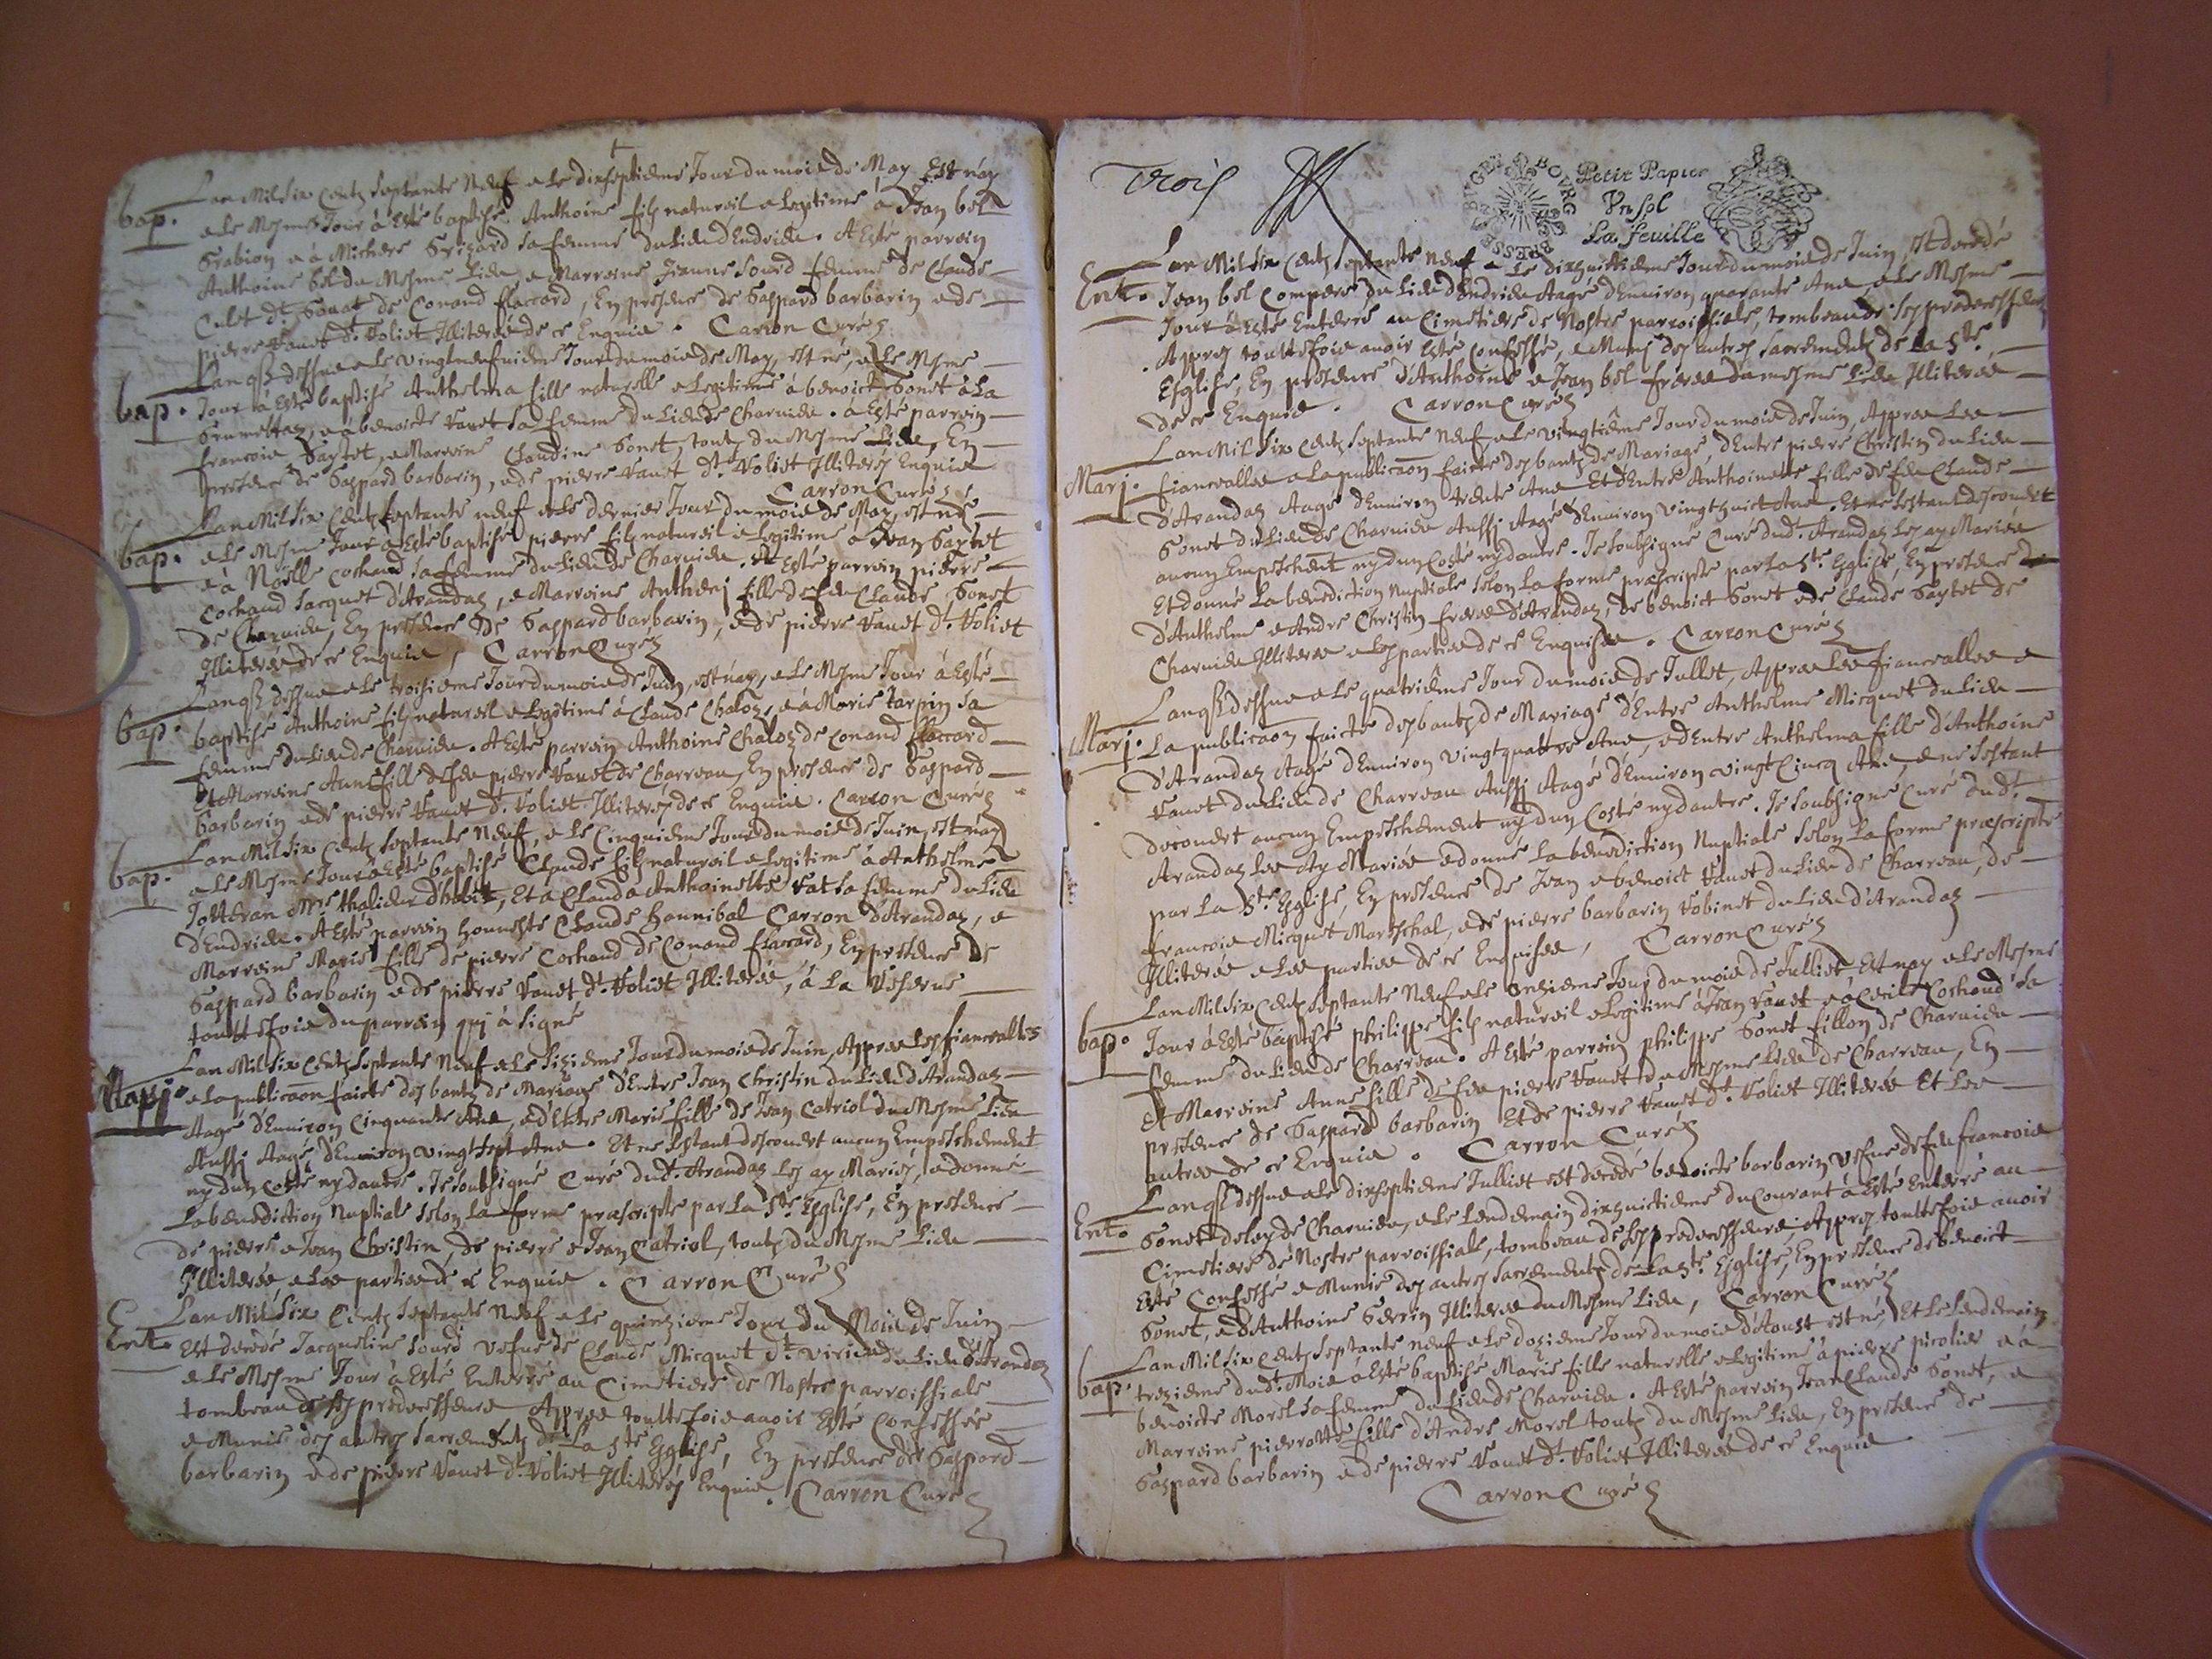 bap. Lan Mil Six Centz Septante Neuf & le dixseptieme Jour du mois de May Est náy
& le Mesme Jour à Esté baptisé Anthoine filz naturel & Legitime à Jean bel
Grabion & à Michere Grizard sa femme du Lieu d'Endrieu. A Esté parrein
Anthoine bel du Mesme Lieu, & Marreine Jeanne Sourd femme de Claude
Culet dt. Gonat de Conand flaccard, En presence de Gaspard barbarin & de
pierre Vanet dt. Voliet Illiterés de ce Enquis. Carron Curé
bap. Lanqs dessus & le vingtneufuieme Jour du mois de May, est né, & le Mesme
Jour à Esté baptisé Anthelma fille naturelle & Legitime à benoict Gonet à la
Grumettaz, & à benoicte Vanet sa femme du Lieu de Charuieu. à Esté parrein
francois Saytet, & Marreine Claudine Gonet, toutz du Mesme Lieu, En
presence de Gaspard barbarin, & de pierre Vanet dt. Voliet Illiterés Enquis
Carron Curé
bap. Lan Mil Six Centz Septante neuf & le dernier Jour du mois de May, est né
& le Mesme Jour à Esté baptisé pierre filz naturel & Legitime à Jean Saytet
& à Noëlle Cochand sa femme du Lieu de Charuieu. A Esté parrein pierre
Cochand Jacquet d'Arandaz, & Marreine Anthe fille de feu Claude Gonet
de Charuieu, En presence de Gaspard barbarin, & de pierre Vanet dt. Voliet
Illiterés de ce Enquis, Carron Curé
bap. Lanqs dessus & le troisieme Jour du mois de Juin, est náy, & le Mesme Jour à Esté
baptisé Anthoine filz naturel & Legitime à Claude Chaloz, & à Marie tarpin sa
femme du Lieu de Charuieu. A Esté parrein Anthoine Chaloz de Conand flaccard
Et Marreine Anne fille de feu pierre Vanet de Charreau, En presence de Gaspard
barbarin & de pierre Vanet dt. Voliet Illiterés de ce Enquis. Carron Curé
bap. Lan Mil Six Centz Septante Neuf, & le Cinquieme Jour du mois de Juin, est náy
& le Mesme Jour à Esté baptisé Claude filz naturel & Legitime à Anthelme
Jotteran mre. d'habit, Et à Clauda Anthoinette Vat sa femme du Lieu
d'Endrieu. A Esté parrein honneste Claude Hannibal Carron d'Arandaz, &
Marreine Marie fille de pierre Cochand de Conand flaccard, En presence de
Gaspard barbarin & de pierre Vanet dt. Voliet Illiterés, à la Reserue
touttefois du parrein quj à signé
Marj. Lan Mil Six Centz Septante Neuf & le Sixieme Jour du mois de Juin, Appres les fiancealles
& la publicaon faicte des bantz de Mariage d'Entre Jean Christin du Lieu d'Arandaz
Aagé d'Enuiron Cinquante Ans, & d'Entre Marie fille de Jean Catriol du Mesme Lieu
Aussj Aagé d'Enuiron vingt Sept Ans. Et ne s'estant descouuert aucun Empeschement
ny dun Costé ny dautre. Je soubsigné Curé dudt. Arandaz les ay Mariés, & donné
La benediction Nuptiale selon la forme præscripte par la Ste. Esglise, En presence
de pierre & Jean Christin, de pierre & Jean Catriol, toutz du Mesme Lieu
Illiterés & les parties de ce Enquis. Carron Curé
Ent. Lan Mil Six Centz Septante Neuf & le quinzieme Jour du Mois de Juin
Est decedé Jacqueline Sourd vefue de Claude Micquet dt. Viricu du Lieu d'Arandaz
& le Mesme Jour à Esté Enterré au Cimetiere de Nostre parroissiale
tombeau de ses predecesseurs Appres touttefois auoir Esté Confessée
& Munie des autres sacrements de la Ste. Esglise, En presence de Gaspard
barbarin & de pierre Vanet dt. Voliet Illiterés Enquis. Carron Curé
Trois
BOVRG EN BRESSE BVGEY
Petit Papier
Vn Sol
La feuille
Ent. Lan Mil Six Centz Septante Neuf & le dixhuictieme Jour du mois de Juin, Est decedé
Jean bel Compere du Lieu d'Endrieu Aagé d'Enuiron quarante Ans, & le Mesme
Jour à Esté Enterré au Cimetiere de Nostre parroissiale, tombeau de ses predecesseurs
Appres touttefois auoir Esté Confessé, & Munj des autres sacrements de la Ste.
Esglise, En presence d'Anthoine & Jean bel freres du mesme Lieu Illiterés
de ce Enquis. Carron Curé
Marj. Lan Mil Six Centz Septante Neuf & le Vingtiéme Jour du mois de Juin, Appres les
fiancealles & la publicaon faicte des bantz de Mariage, d'Entre pierre Christin du Lieu
d'Arandaz Aagé d'Enuiron trente Ans Et d'Entre Anthoinette fille de feu Claude
Gonet du Lieu de Charuieu Aussj Aagé d'Enuiron vingthuict Ans. Et ne s'estant descouuert
aucun Empeschent ny dun Costé ny dautre. Je Soubsigné Curé dudt. Arandaz les ay Mariés
Et donné la benediction Nuptiale selon la forme præscripte par la Ste. Esglise, En presence de
d'Anthelme & André Christin freres d'Arandaz, de benoict Gonet & de Claude Saytet de
Charuieu Illiterés & les parties de ce Enquises. Carron Curé
Marj. Lanqs dessus & le quatrième Jour du mois de Jullet, Appres les fiancealles &
La publicaon faicte des bantz de Mariage d'Entre Anthelme Micquet du Lieu
d'Arandaz Aagé d'Enuiron Vingtquattre Ans, & d'Entre Anthelma fille d'Anthoine
Vanet du Lieu de Charreau Aussj Aagé d'Enuiron vingt Cincq Ans & ne s'estant
decouuert aucun Empeschement ny dun Costé ny dautre. Je Soubsigné Curé dudt.
Arandaz les Ay Mariés & donné la benediction Nuptiale selon la forme præscripte
par la Ste. Esglise, En presence de Jean & benoict Vanet du Lieu de Charreau, de
francois Micquet Mareschal, & de pierre barbarin Robinet du Lieu d'Arandaz
Illiterés & les parties de ce Enquises, Carron Curé
bap. Lan Mil Six Centz Septante Neuf & le Onzieme Jour du mois de Julliet, Est nay & le Mesme
Jour à Esté baptisé philippe filz naturel & Legitime à Jean Vanet & à Cecile Cochand sa
femme du Lieu de Charreau. A Esté parrein philippe Gonet fillon de Charuieu
Et Marreine Anne fille de feu pierre Vanet du Mesme Lieu de Charreau, En
presence de Gaspard barbarin Et de pierre Vanet dt. Voliet Illiterés Et les
autres de ce Enquis. Carron Curé
Ent. Lanqs dessus & le dixseptieme Julliet est decedé benoicte barbarin vefue de feu francois
Gonet deley de Charuieu, & le lendemain dixhuictieme du Courant à Esté Enterré au
Cimetiere de Nostre parroissiale, tombeau de ses predecesseurs, Appres touttefois auoir
Esté Confessé & Munie des autres sacrements de la Ste. Esglise, En presence de benoict
Gonet, & d'Anthoine Serrin Illiterés du Mesme Lieu, Carron Curé
bap. Lan Mil Six Centz Septante neuf & le dozieme Jour du mois d'Aoust est né, Et le lendemain
trezieme dudt. Mois à Esté baptisé Marie fille naturelle & Legitime à pierre picolier & à
benoicte Morel sa femme du Lieu de Charuieu. A Esté parrein Jean Claude Gonet, &
Marreine pierrotte fille d'André Morel toutz du Mesme Lieu, En presence de
Gaspard barbarin & de pierre Vanet dt. Voliet Illiterés de ce Enquis
Carron Curé